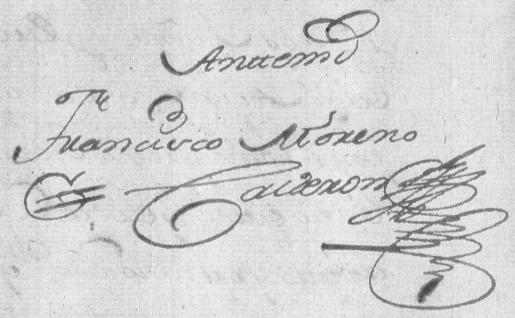 Antemi
Francisco Moreno
Calderon